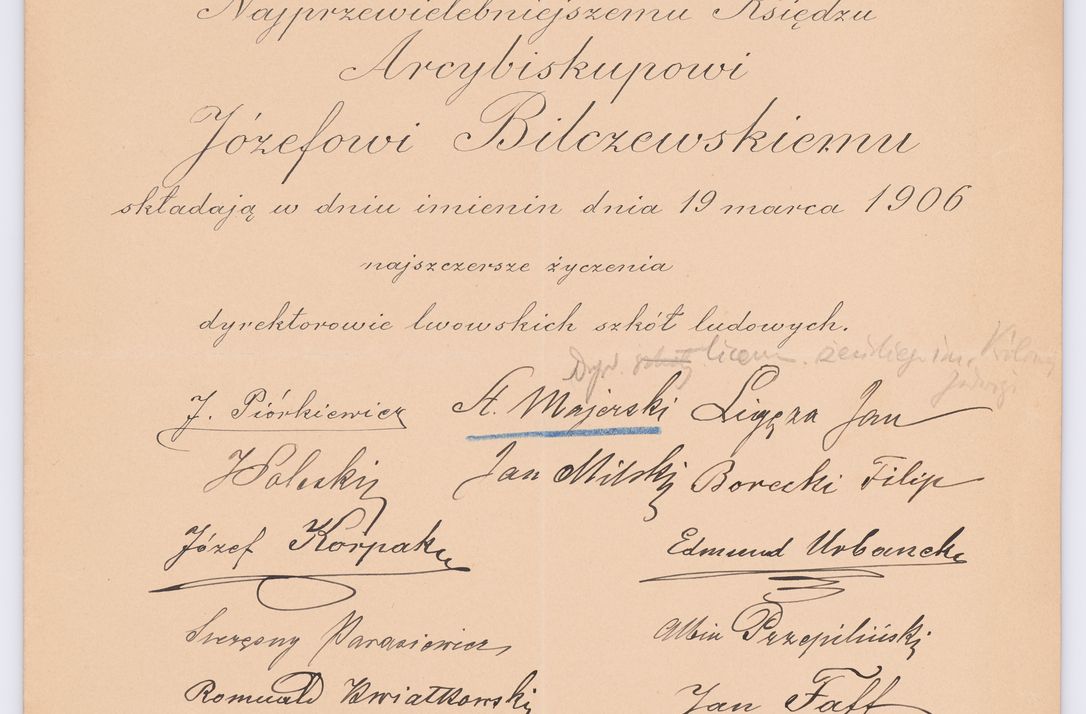 Najprzewielebniejszemu Księdzu
Arcybiskupowi
Józefowi Bilczewskiemu
składają w dniu imienin dnia 19 marca 1906
najszczersze życzenia
dyrektorowie lwowskich szkół ludowych.
Dyr. liceum żeńskiego im. Królowej
Jadwigi
J. Piórkiewicz St. Majerski Ligęza Jan
Jan Milski Borecki Filip
Józef Korpak Edmund Urbanek
Szczęsny Parasiewicz Albin Przepiliński
Romuald Kwiatkowski Jan Faff